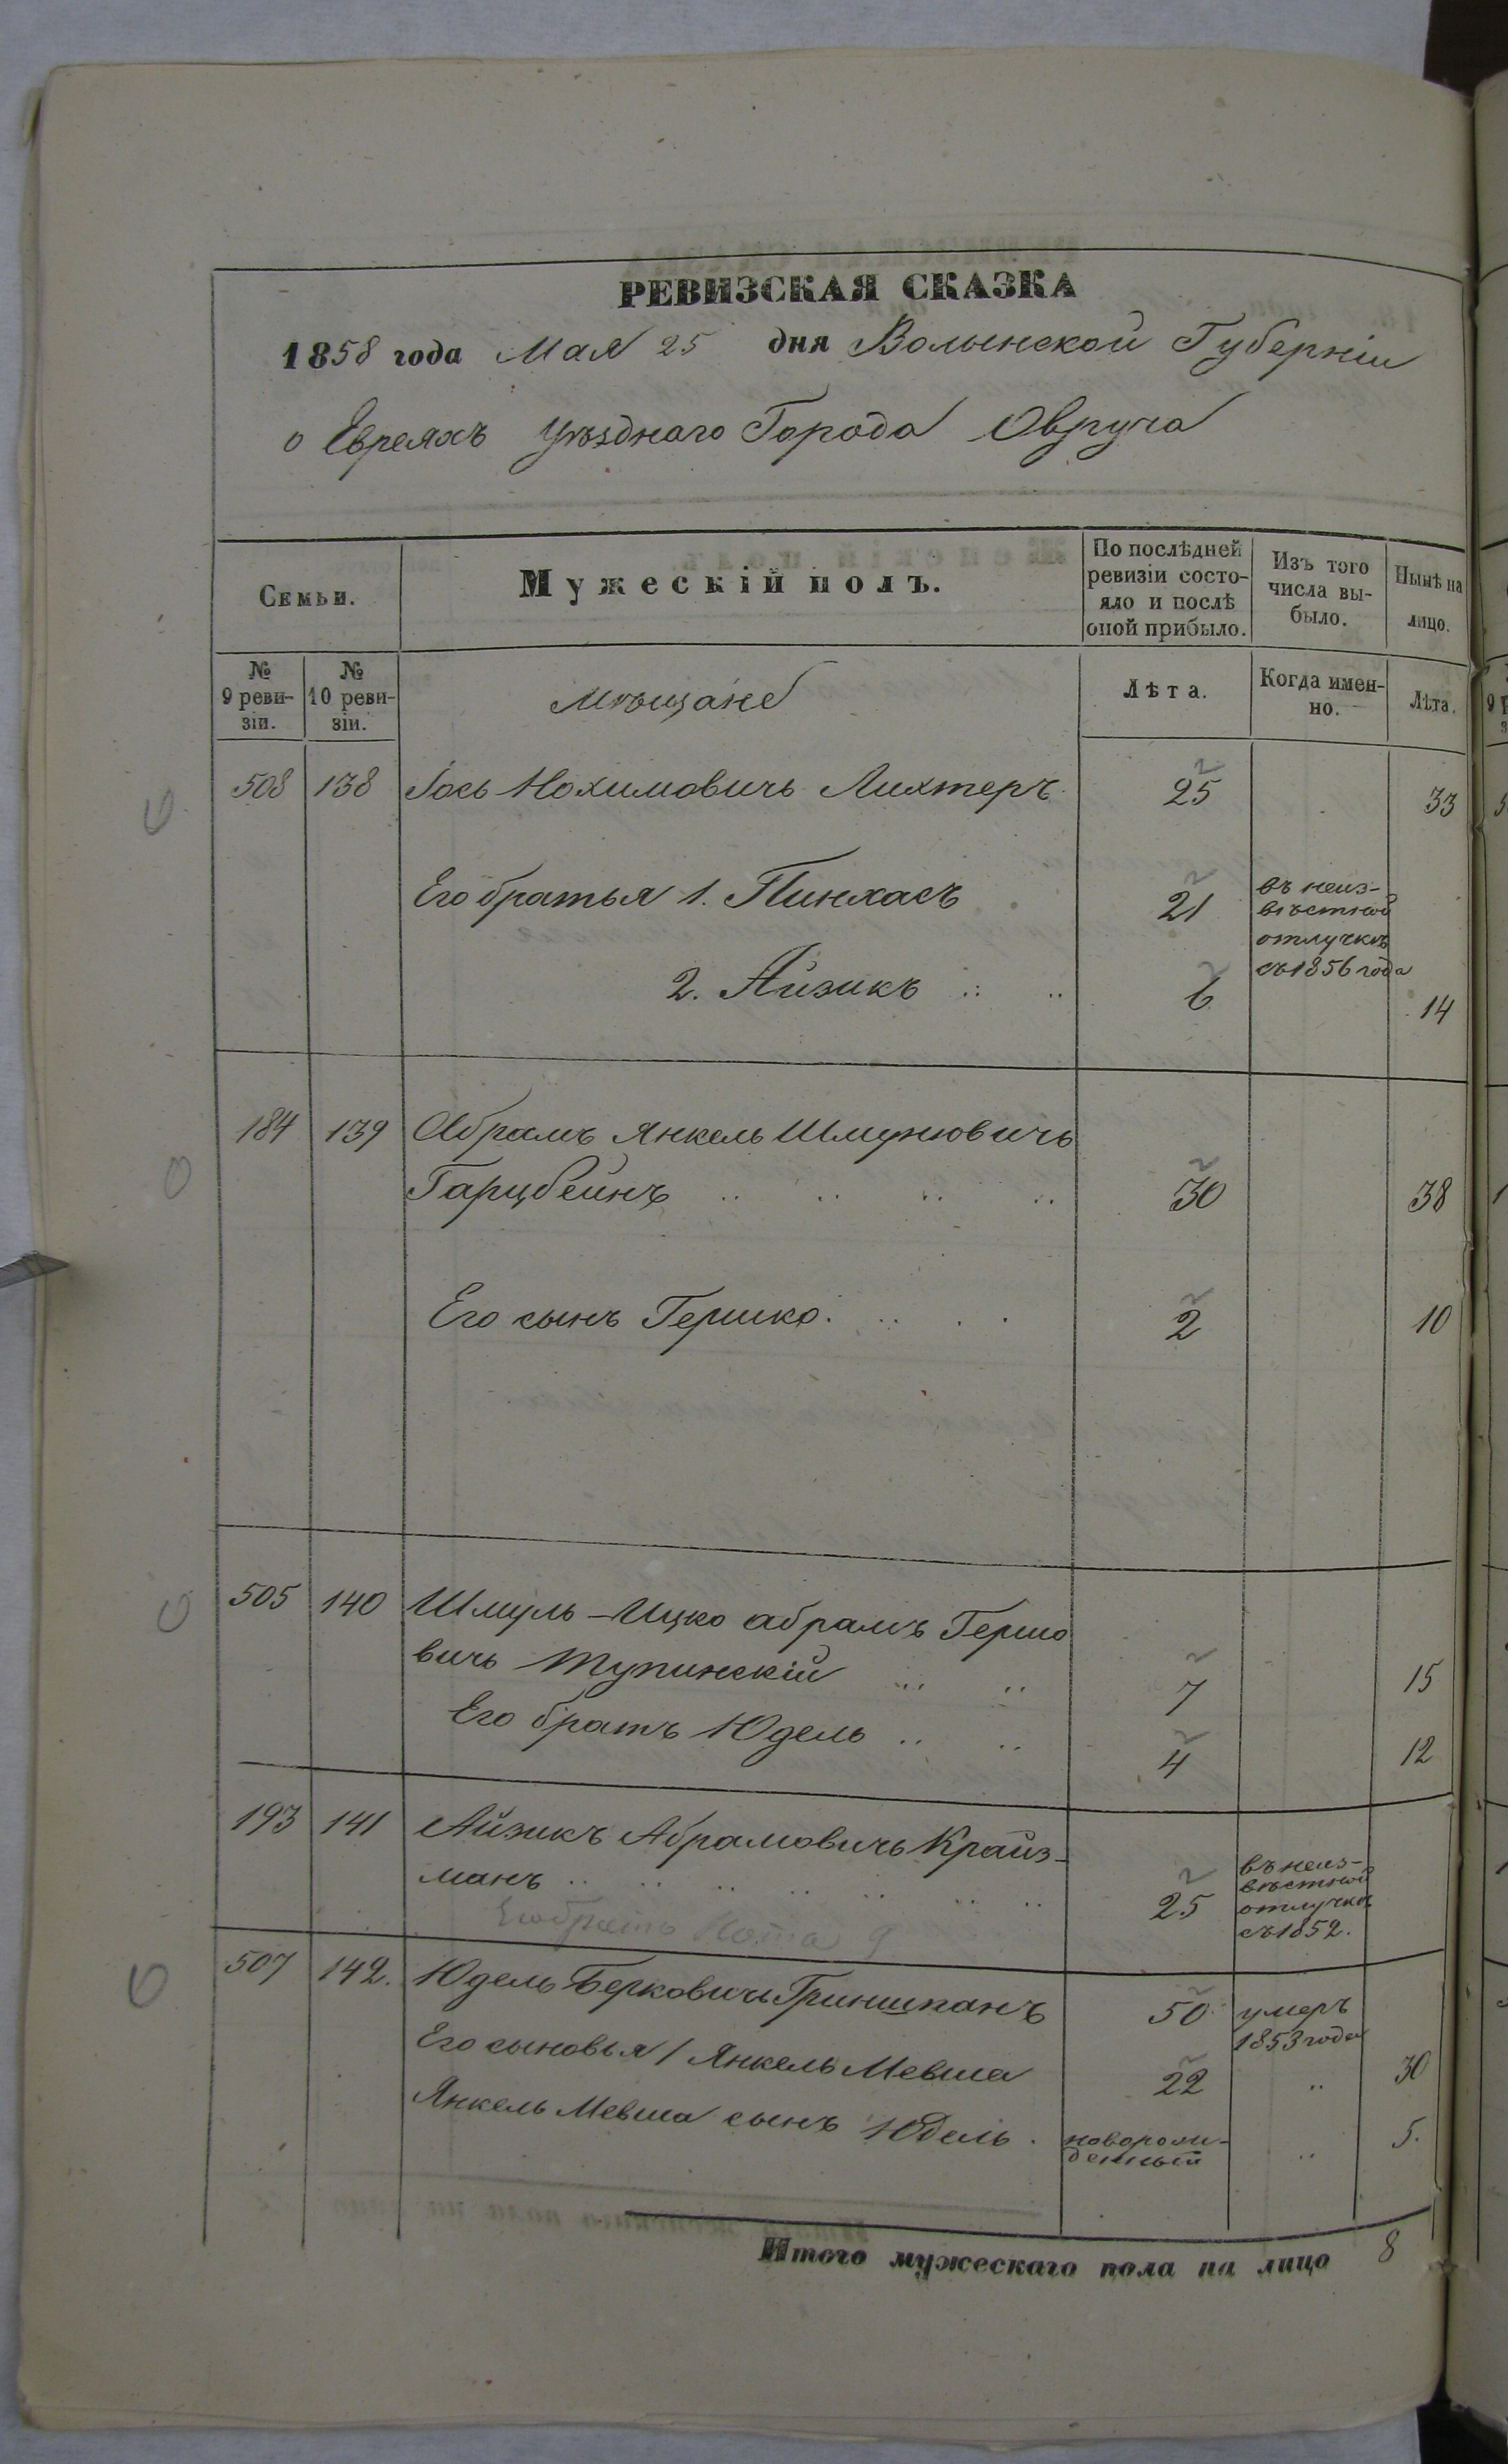 РЕВИЗСКАЯ СКАЗКА
1858 года Мая 25 дня Волынской Губерніи
о Евреяхъ Уѣзднаго Города Овруча
Семьи.
Мужескій полъ.
По послѣдней ревизіи состо-
яло и послѣ оной прибыло.
Изъ того числа вы-
было.
Нынѣ на лицо.
№ 9 реви-
зіи.
№ 10 реви-
зіи.
Мѣщане
Лѣта.
Когда имен-
но.
Лѣта.
508 138 Іось Нохимовичь Лихтеръ 25 33
Его братья 1. Пинхасъ 21 въ неиз-
вѣстной
отлучкѣ
съ 1856 года
2. Айзикъ 6 14
184 139 Абрамъ Янкель Шмунювичь
Гарцбейнъ 30 38
Его сынъ Гершко. 2 10
505 140 Шмуль-Ицко абрамъ Гершо
вичь Тупинскій 7 15
Его братъ Юдель 4 12
193 141 Айзикъ Абрамовичь Крайз-
манъ 25 въ неиз-
вѣстной
отлучкѣ
съ 1852.
Его братъ Нота 9
507 142. Юдель Берковичь Гриншпанъ 50 умеръ
1853 года
Его сыновья 1 Янкель Мевша 22 30
Янкель Мевша сынъ Юдель. новорож-
денный 5.
Итого мужескаго пола на лицо 8